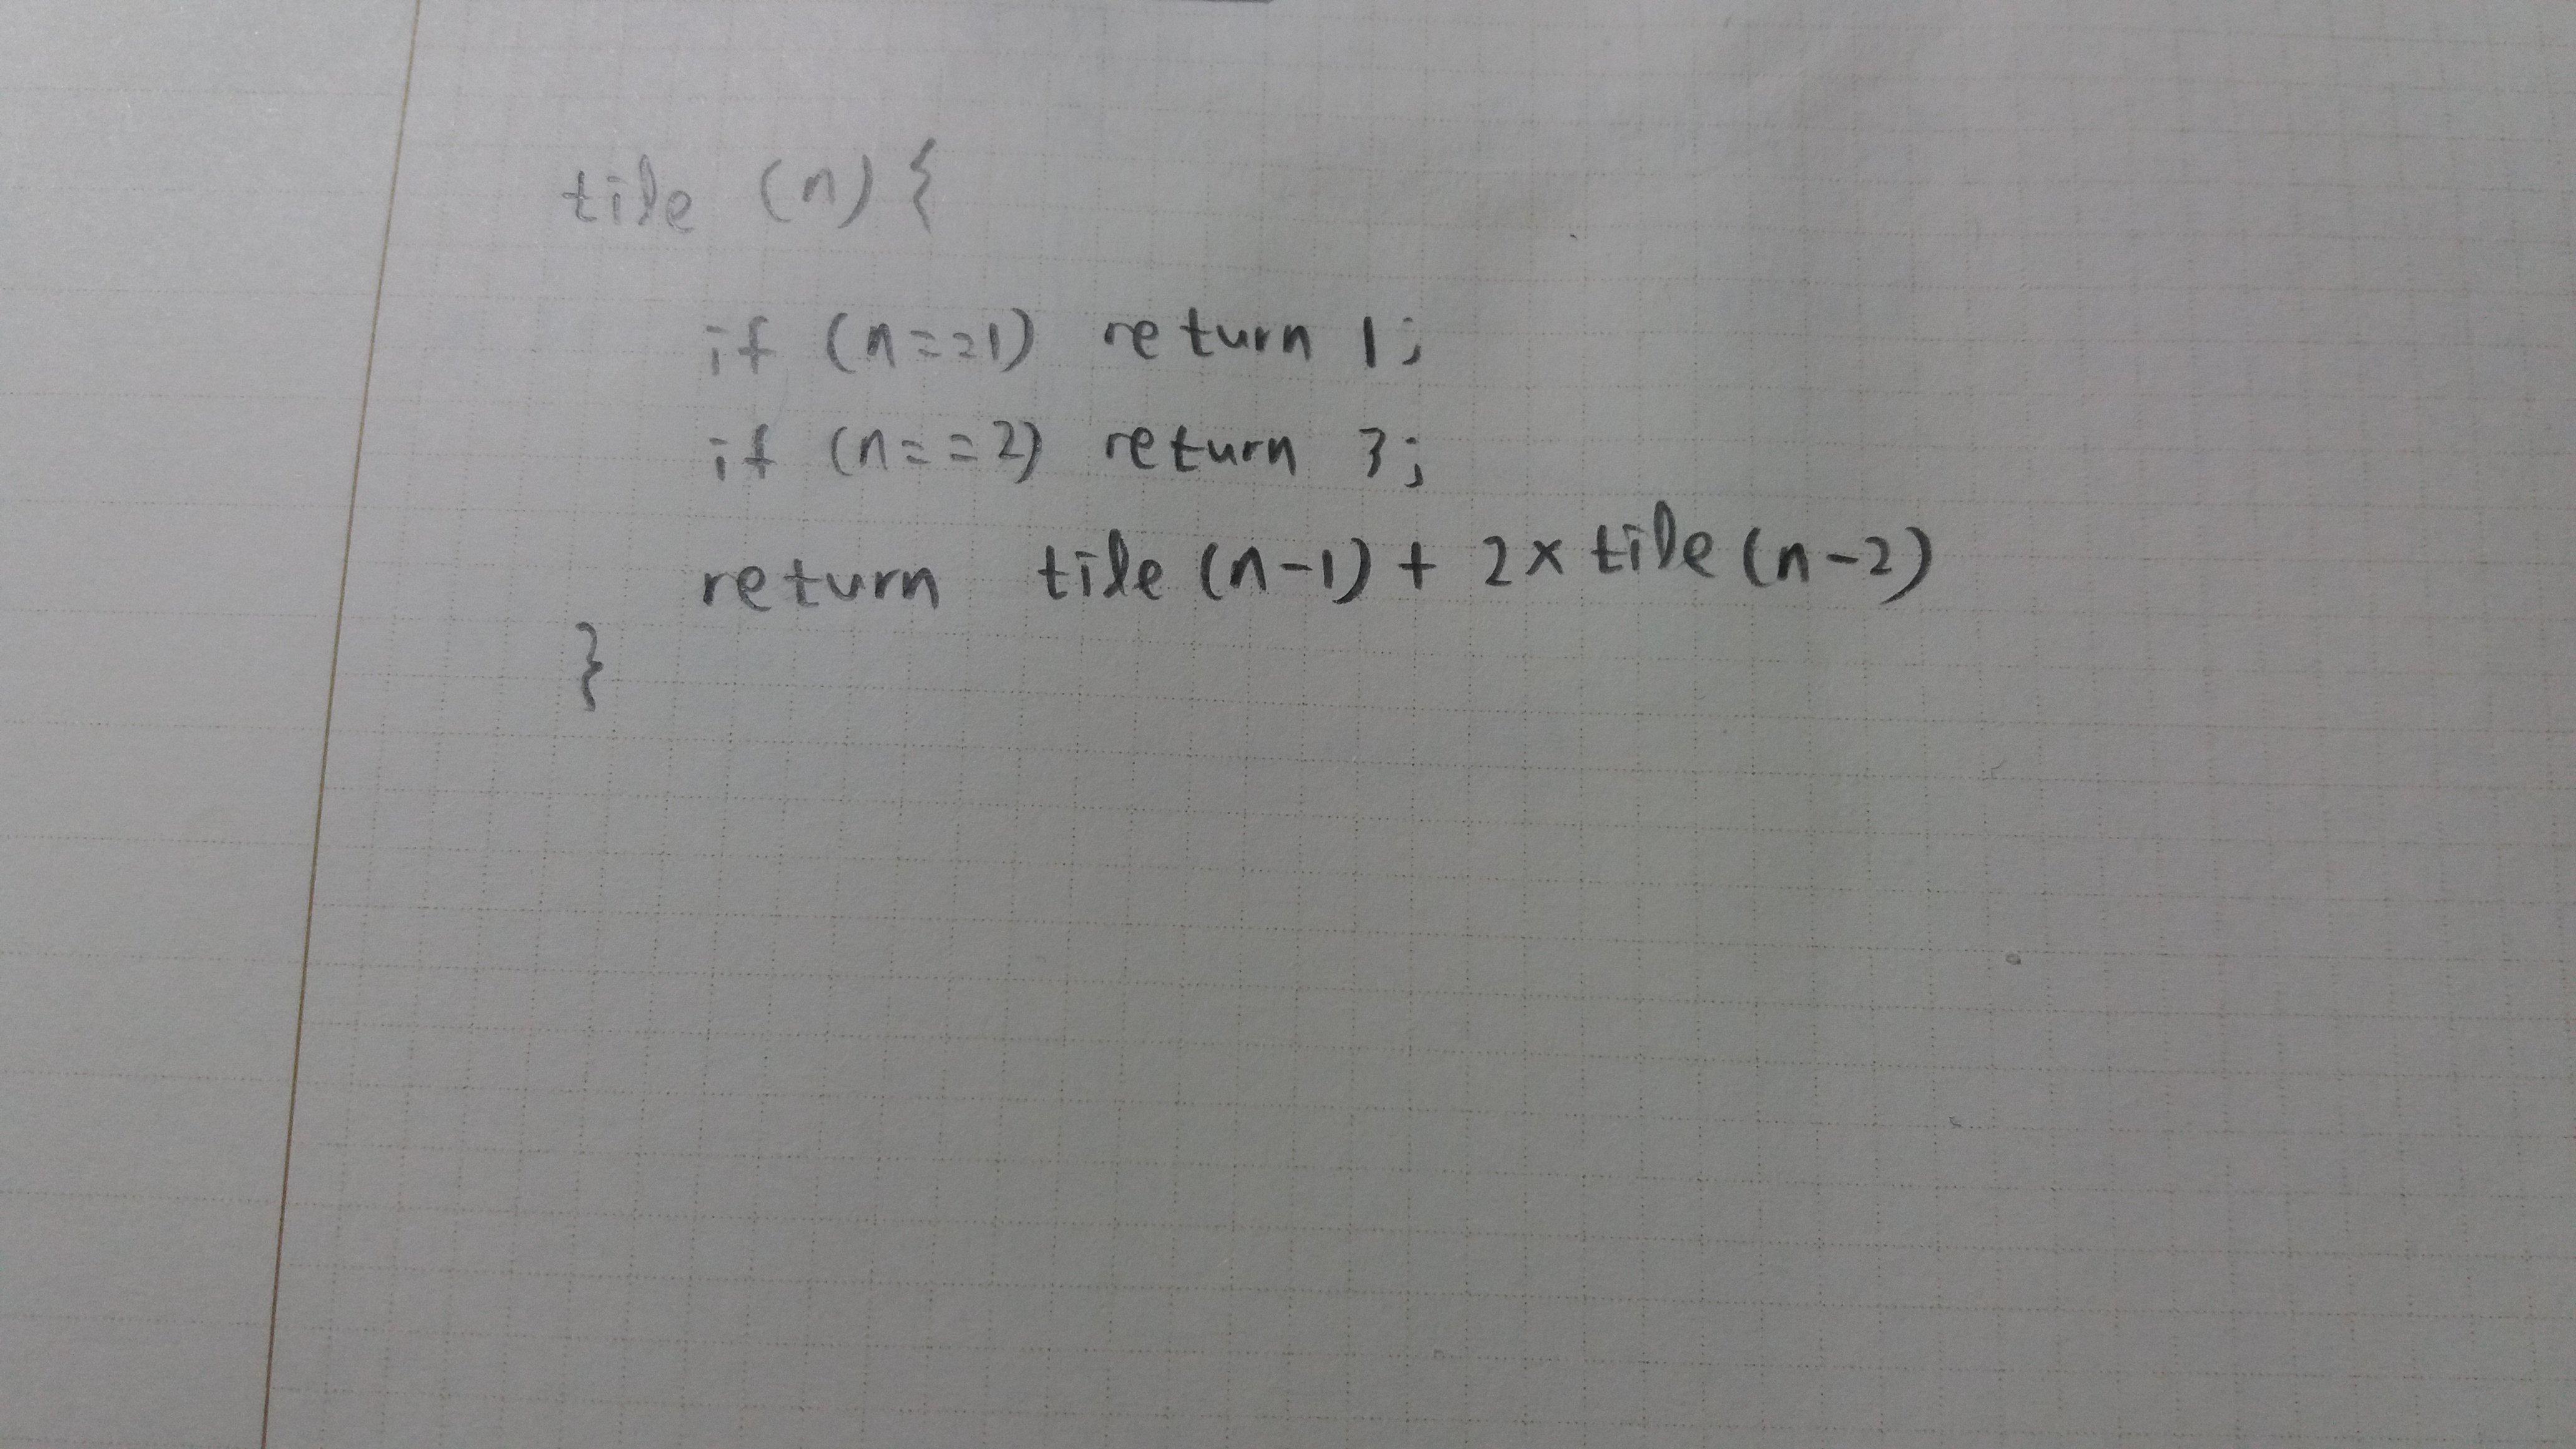 tile (n) {
if (n==1) return 1;
if (n==2) return 3;
return tile (n-1) + 2 × tile (n-2)
}